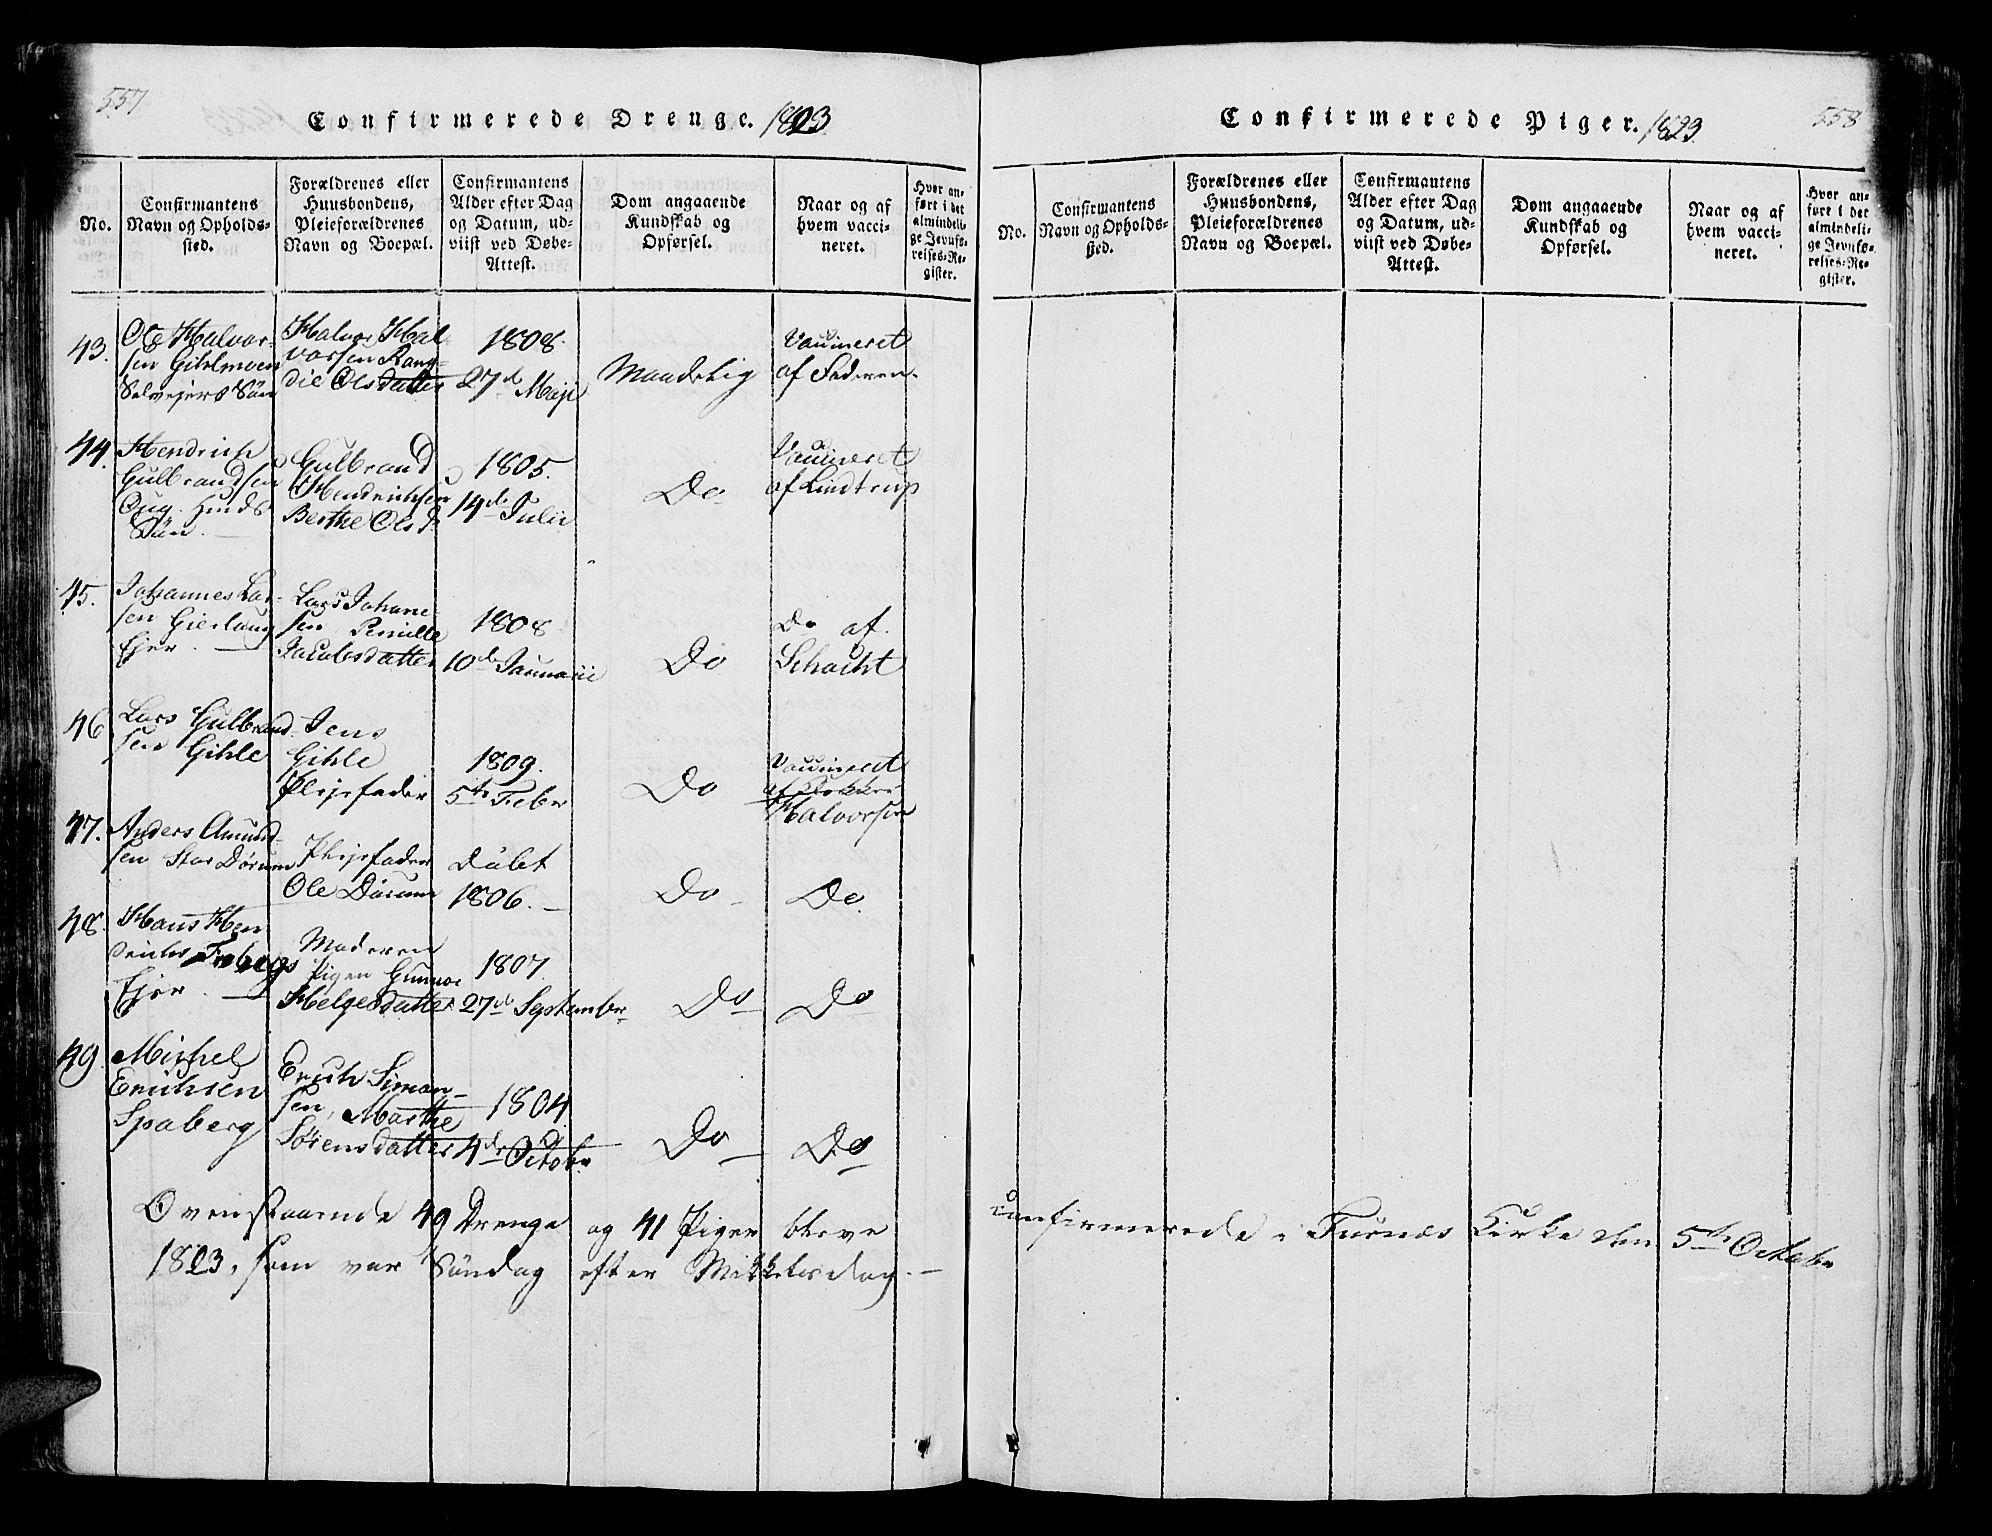 557
Confirmerede Drenge. 1823
No.
Confirmantens
Navn og Opholds-
sted.
Forældrenes eller
Huusbondens,
Pleieforældrenes
Navn og Boepæl.
Confirmantens
Alder efter Dag
og Datum, ud-
viist ved Døbe-
Attest.
Dom angaaende
Kundskab og
Opførsel.
Naar og af
hvem vacci-
neret.
Hvor an-
ført i det
almindeli-
ge Jevnfø-
relses-Re-
gister.
43.
Ole Halvor-
sen Gihlmoen
Selvejers Søn
Halvor Hal-
vorsen Rang-
die Olsdatter
1808.
27de Maji
Maadelig
Vaccineret
af Faderen.
44.
Hendrich
Gulbrandsen
Søn.
Gulbrand
Hendrichsen
Berthe Olsd.
1805.
14de Julii
Do
Vaccineret
af Lindtrup
45.
Johannes Lar-
sen Gierlaug
Ejer.
Lars Johane-
sen Pernille
Jacobsdatter
1808
10de Januarii
Do
Do af
Schacht
46
Lars Gulbrand-
sen Gihle
Jens
Gihle
Plejefader
1809.
5te Febr
Do
Vaccineret
af
Halvorsen
47.
Anders Amund-
sen Stor Dørum
Plejefader
Ole Dørum
Døbt
1806.
Do
Do
48.
Hans Hen-
Ejer.
Moderen
Pigen Gunnor
Helgesdatter
1807.
27de September
Do
Do
49.
Michel
Erichsen
Spaberg
Erich Simon-
sen, Marthe
Sørensdatter
1804
4de Octobr
Do
Do
Ovenstaaende 49 Drenge og 41 Piger bleve
1823, som var Søndag efter Mikkelsdag.
Confirmerede Piger. 1823
558
No.
Confirmantens
Navn og Opholds-
sted.
Forældrenes eller
Huusbondens,
Pleieforældrenes
Navn og Boepæl.
Confirmantens
Alder efter Dag
og Datum, ud-
viist ved Døbe-
Attest.
Dom angaaende
Kundskab og
Opførsel.
Naar og af
hvem vacci-
neret.
Hvor an-
ført i det
almindeli-
ge Jevnfø-
relses-Re-
gister.
confirmerede i Furnæs Kirke den 5te Octobr